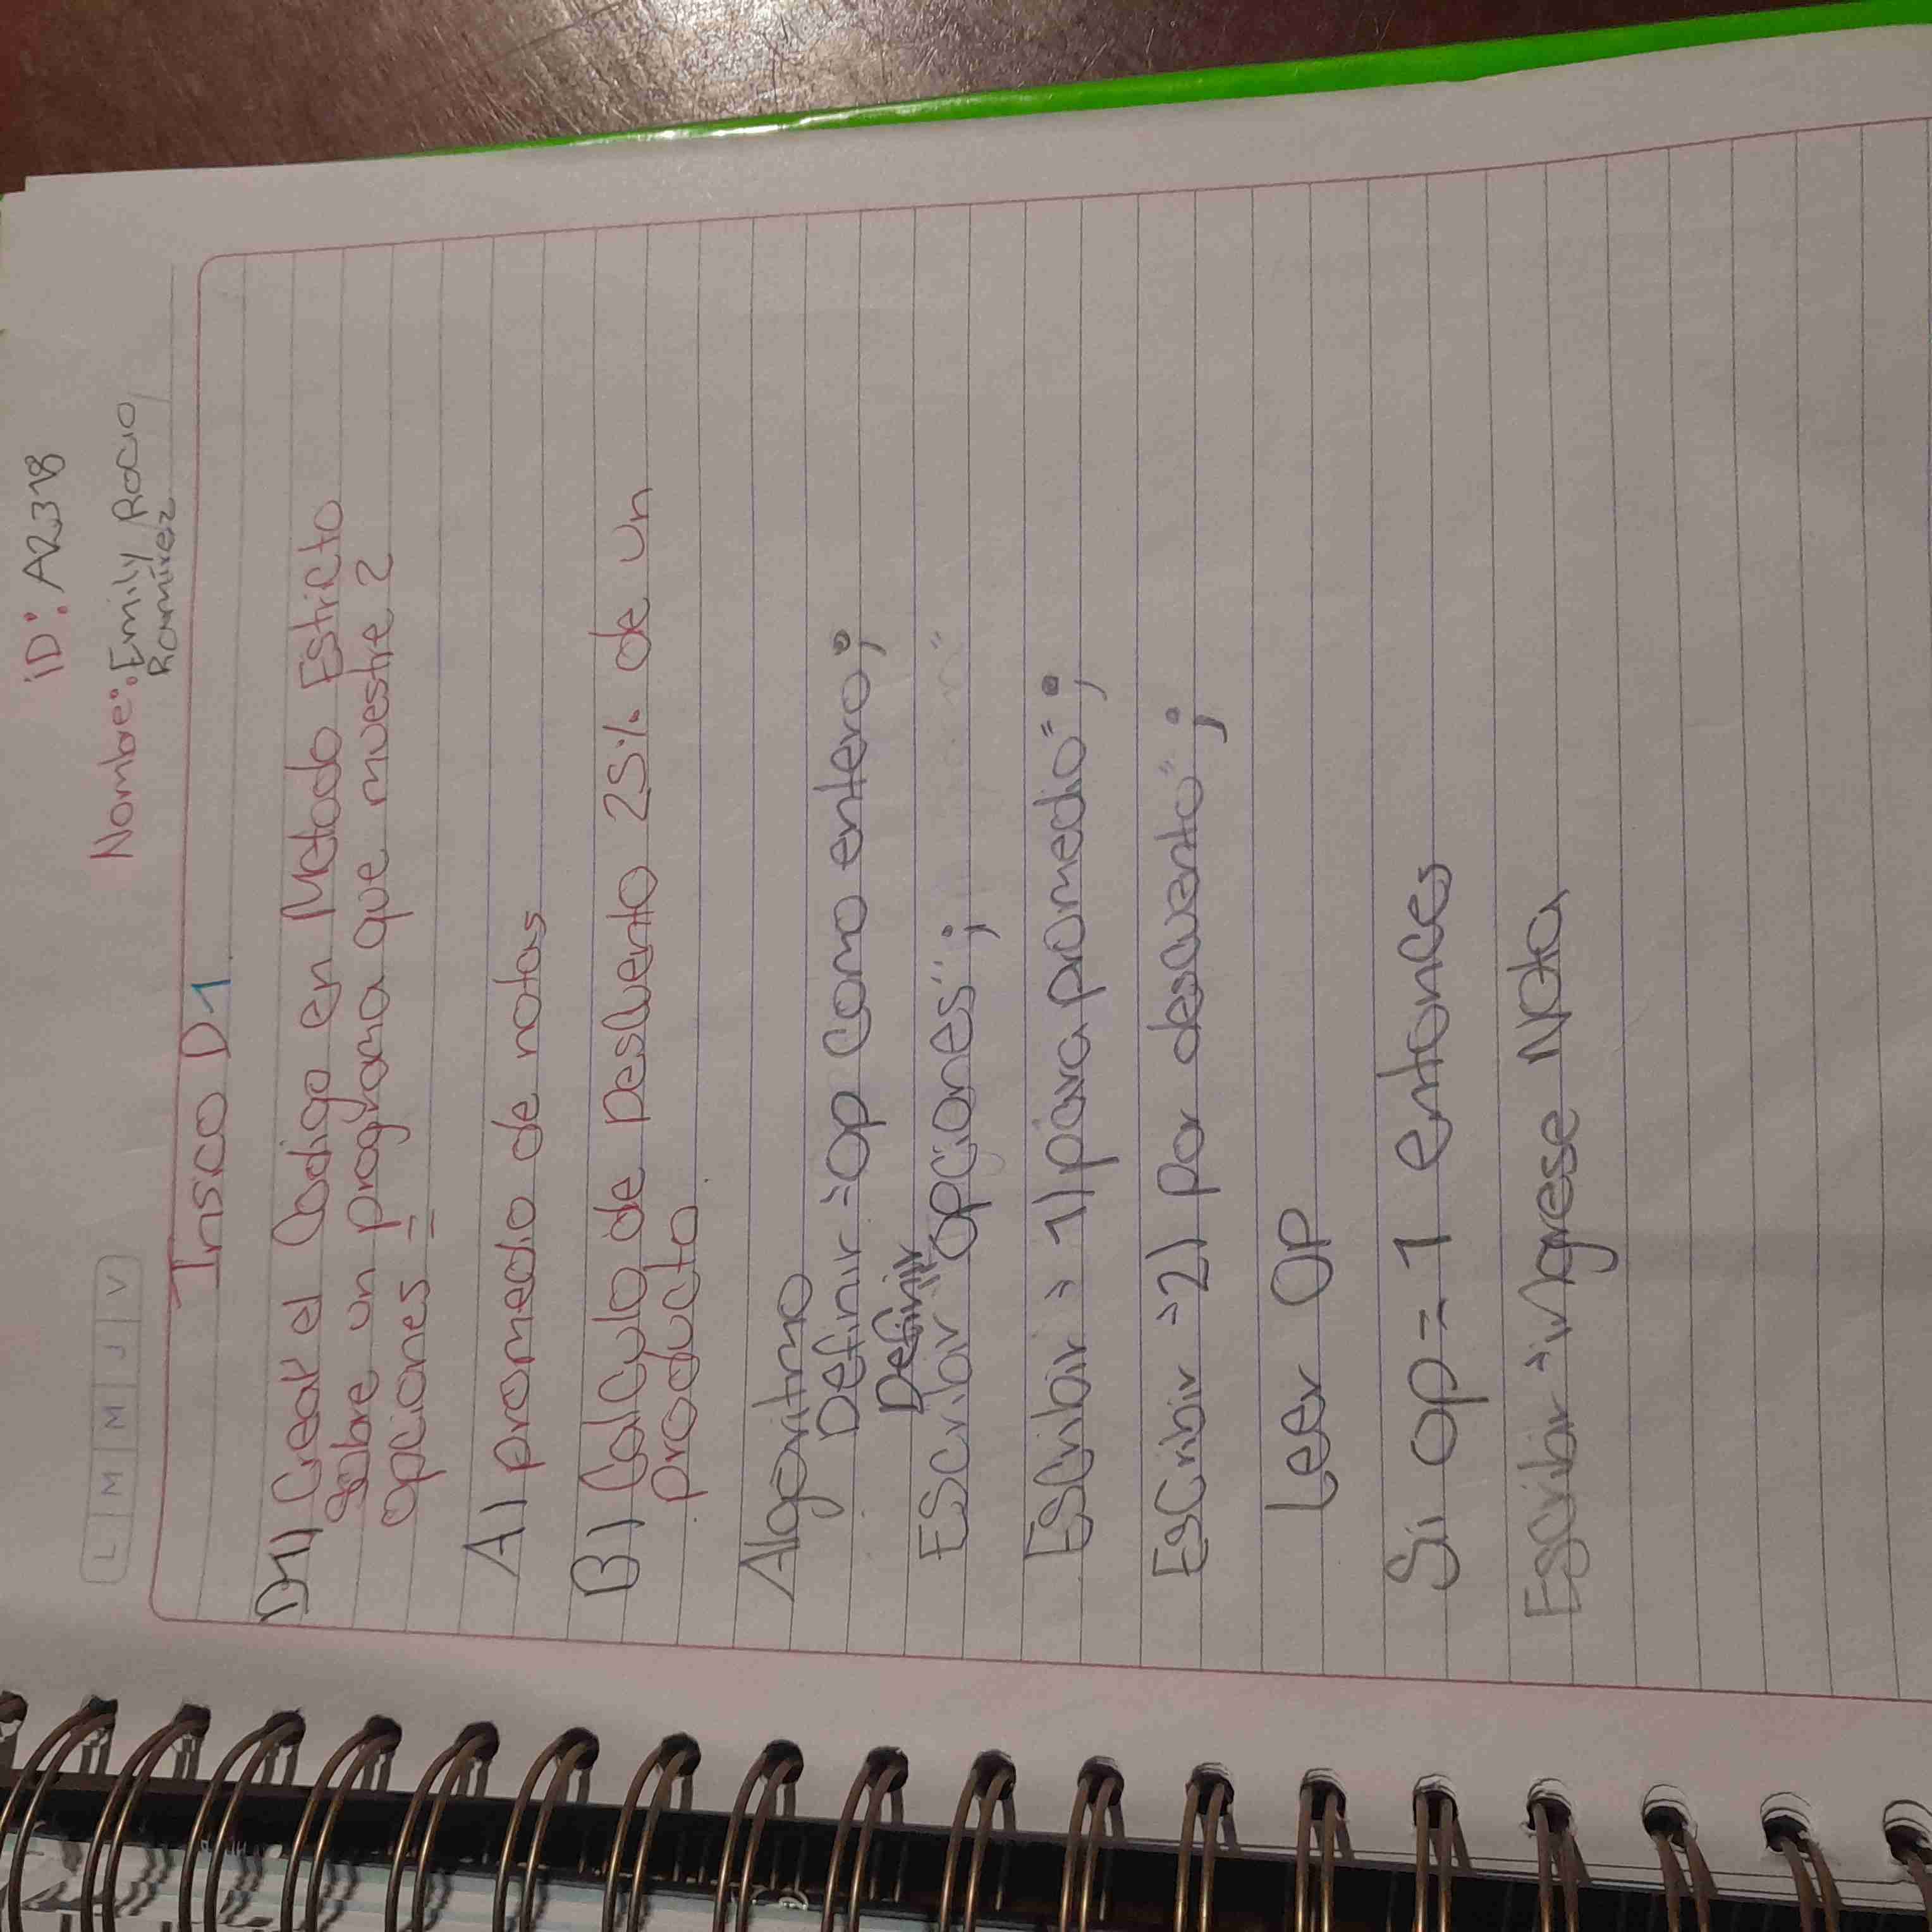 L M M J V
ID: A2318
Nombre: Emily Rocio
Ramirez
Insco D1
D11) Crear el Codigo en Metodo Estricto
sobre un programa que muestre 2
opciones =
A) promedio de notas
B) Calculo de Desluento 25% de un
producto
Algoritmo
Definir = op como entero;
Escribir "opciones";
Escribir > 1) para promedio";
Escribir "2) por descuento";
Leer OP
Si op = 1 entonces
Escribir "ingrese Nota